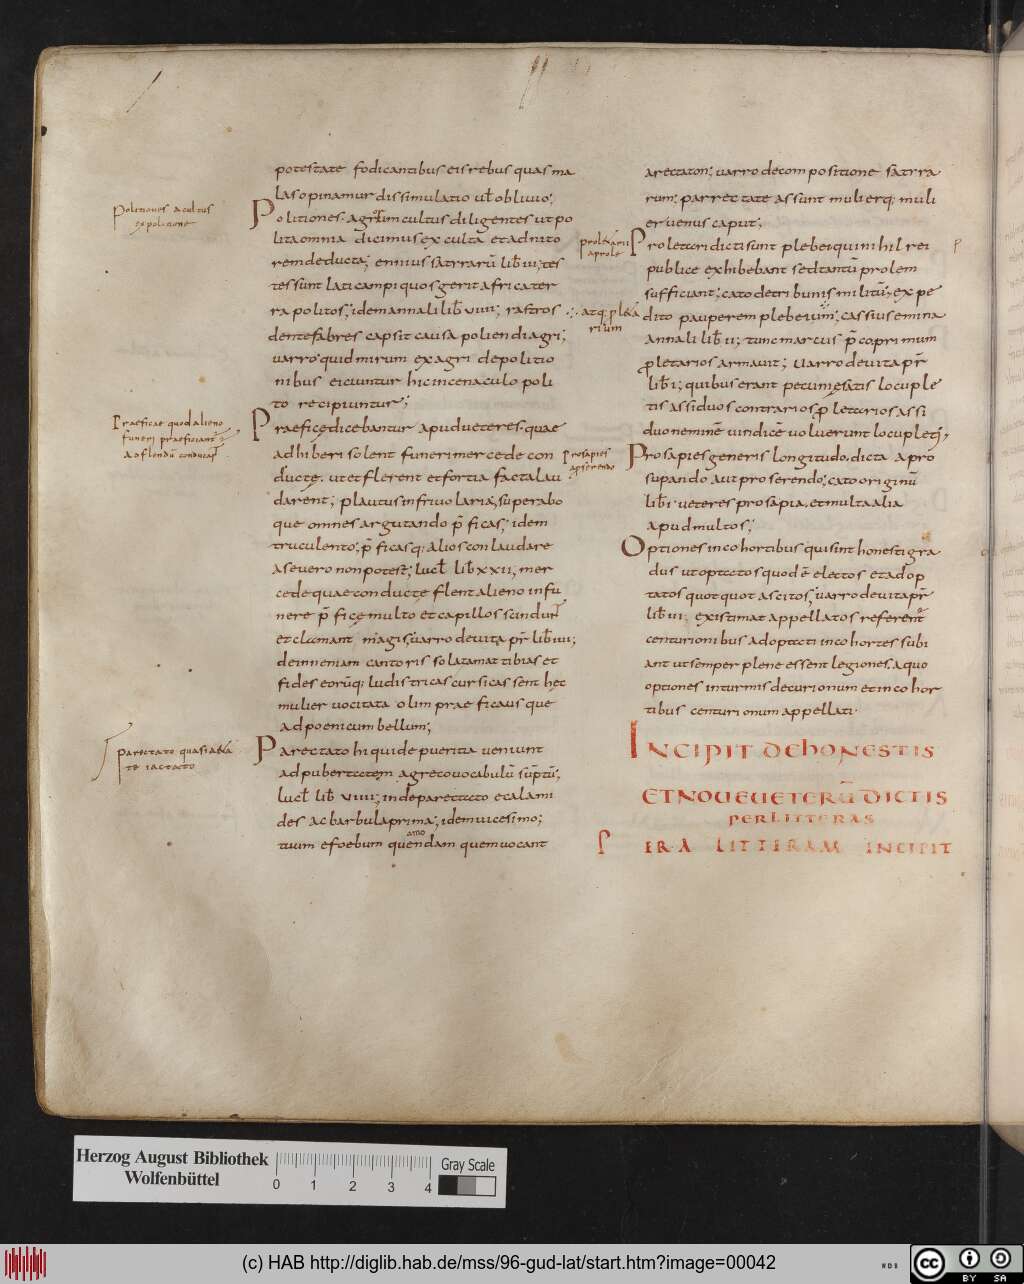 potestate fodicantibus eis rebus quas ma
las opinamur dissimulatio ut obliuio;
Politiones agrorum cultus diligentes ut po
lita omnia dicimus exculta et ad nito
rem deducta; ennius satrrarū lib̄ iii; tes
tes sunt lati campi quos gerit africa ter
ra politos; idem annali lib̄ viiii; rastros
dente fabres capsit causa poliendi agri;
uarro quid mirum ex agri depolitio
nibus eiciuntur hic in cenaculo poli
to recipiuntur;
Praeficę dicebantur apud ueteres quae
adhiberi solent funeri mercede con
ductę. ut et flerent et fortia facta lau
darent; plautus in friuolaria, superabo
que omnes argutando p̄ficas; idem
truculento; p̄ficas q; alios conlaudare
aseuero non potest; lucl̄ lib̄ xxii; mer
cede quae conductę flent alieno in fu
nere p̄ficę multo et capillos scindunt
et clamant magis; uarro de uita p̄r lib̄ iiii;
dein neniam cantoris solatam at tibias et
fides eorūq; ludis tricas cursicas sent hęc
mulier uocitata olim praefica usque
ad poenicum bellum;
Parectato hi qui de pueritia ueniunt
ad pubertatem a greco uocabulū sūptū;
lucl̄ lib̄ viiii; inde parectato et calami
des ac barbula prima; idem uicesimo;
tuum efoebum quendam quem uocant
amo
Politiones a cultus
expolitione
Praeficae quod alieno
funeri praeficiant
ad flendū conducat
parectato quasi
te iactato
arectaton; uarro de compositione satrra
rum; parrectate assunt mulierq; muli
er uenus caput;
Proletari dicti sunt plebei qui nihil rei
publice exhibebant sed tantū prolem
sufficiant; cato de tribunis militū; expe
dito pauperem plebeium; cassius emina
annali lib̄ ii; tunc marcus p̄co primum
proletarios armauit; Uarro de uita p̄r
lib̄ i; quibus erant pecunię satis locuple
tis assiduos contrarios proletarios assi
duo neminē uindicē uoluerunt locupleti;
Prosapies generis longitudo. dicta a pro
supando aut proserendo; cato originū
lib̄ i. ueteres prosapia. et multa alia
apud multos;
Optiones in cohortibus qui sint honesti gra
dus ut optatos quod ē electos et adop
tatos quot quot ascitos; uarro de uita p̄r
lib̄ iii; existimat appellatos referent
centurionibus adoptati in cohortes subi
ant ut semper plene essent legiones. a quo
optiones in turmis decurionum et in cohor
tibus centurionum appellati
proletarii
a prole
atq; plełā
rium
Prosapies
a proserendo
INCIPIT DE HONESTIS
ET NOUE UETERŪ DICTIS
PER LITTERAS
P ER A LITTERAM INCIPIT
Herzog August Bibliothek
Wolfenbüttel
0 1 2 3 4
Gray Scale
(c) HAB http://diglib.hab.de/mss/96-gud-lat/start.htm?image=00042
WDB
cc BY SA